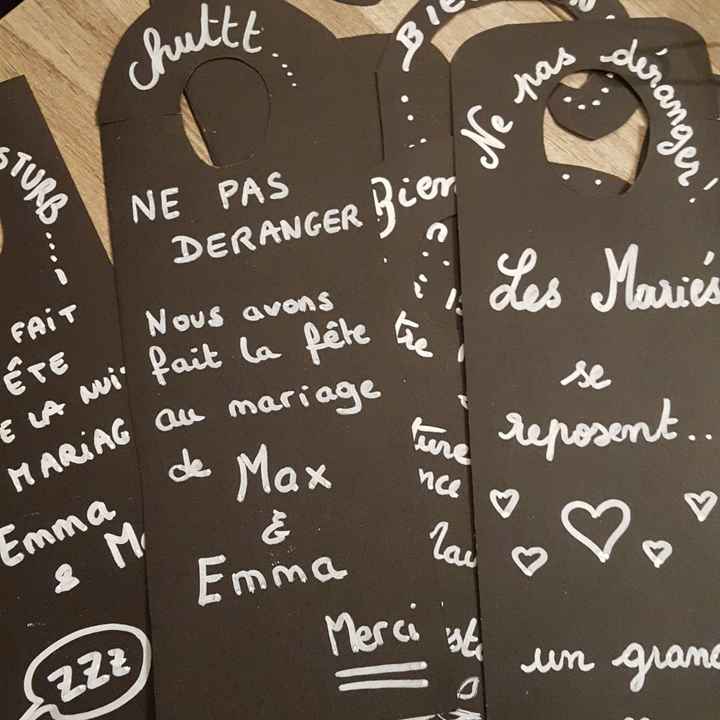 FAIT
LA NUI
MARIAG
Emma
&
zzz
chuttt....
NE PAS
DERANGER
Nous avons
fait la fête
au mariage
de Max
&
Emma
Merci
Bien
Ne pas déranger!
Les Mariés
se
reposent...
un grand